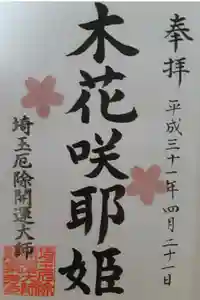 奉拝
平成三十一年四月二十一日
木花咲耶姫
埼玉厄除開運大師